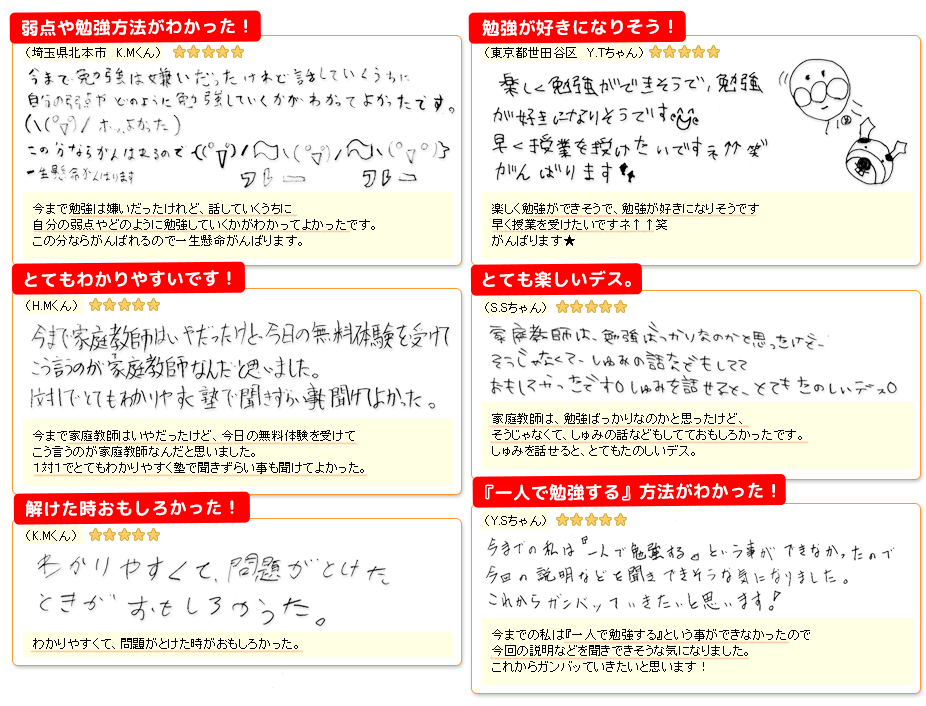 弱点や勉強方法がわかった！
（埼玉県北本市 K.Mくん）
今まで勉強は嫌いだったけれど話していくうちに
自分の弱点やどのように勉強していくかがわかってよかったです。
ホッ、よかった
この分ならがんばれるので
一生懸命がんばります
今まで勉強は嫌いだったけれど、話していくうちに
自分の弱点やどのように勉強していくかがわかってよかったです。
この分ならがんばれるので一生懸命がんばります。
勉強が好きになりそう！
（東京都世田谷区 Y.Tちゃん）
楽しく勉強ができそうで、勉強
が好きになりそうです
早く授業を受けたいですネ↑↑笑
がんばります
楽しく勉強ができそうで、勉強が好きになりそうです
早く授業を受けたいですネ↑↑笑
がんばります★
とてもわかりやすいです！
（H.Mくん）
今まで家庭教師はいやだったけど、今日の無料体験を受けて
こう言うのが家庭教師なんだと思いました。
1対1でとてもわかりやすく塾で聞きずらい事も聞けてよかった。
今まで家庭教師はいやだったけど、今日の無料体験を受けて
こう言うのが家庭教師なんだと思いました。
1対1でとてもわかりやすく塾で聞きずらい事も聞けてよかった。
とても楽しいデス。
（S.Sちゃん）
家庭教師は、勉強ばっかりなのかと思ったけど、
そうじゃなくて、しゅみの話などもしてて
おもしろかったです。しゅみを話せると、とてもたのしいデス。
家庭教師は、勉強ばっかりなのかと思ったけど、
そうじゃなくて、しゅみの話などもしてておもしろかったです。
しゅみを話せると、とてもたのしいデス。
解けた時おもしろかった！
（K.Mくん）
わかりやすくて、問題がとけた
ときが おもしろかった。
わかりやすくて、問題がとけた時がおもしろかった。
『一人で勉強する』方法がわかった！
（Y.Sちゃん）
今までの私は『一人で勉強する』という事ができなかったので
今回の説明などを聞きできそうな気になりました。
これからガンバッていきたいと思います！
今までの私は『一人で勉強する』という事ができなかったので
今回の説明などを聞きできそうな気になりました。
これからガンバッていきたいと思います！